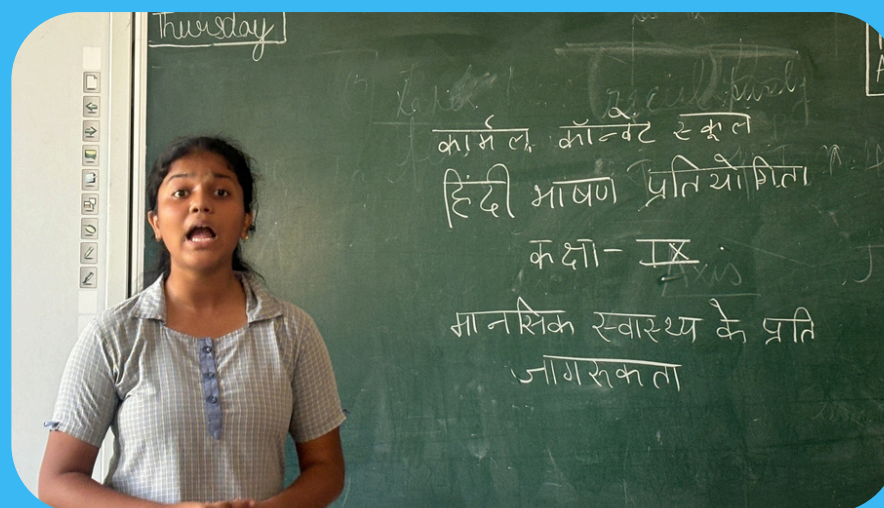 Thursday
कार्मल कॉन्वेंट स्कूल
हिंदी भाषण प्रतियोगिता
कक्षा- IX
मानसिक स्वास्थ्य के प्रति
जागरूकता